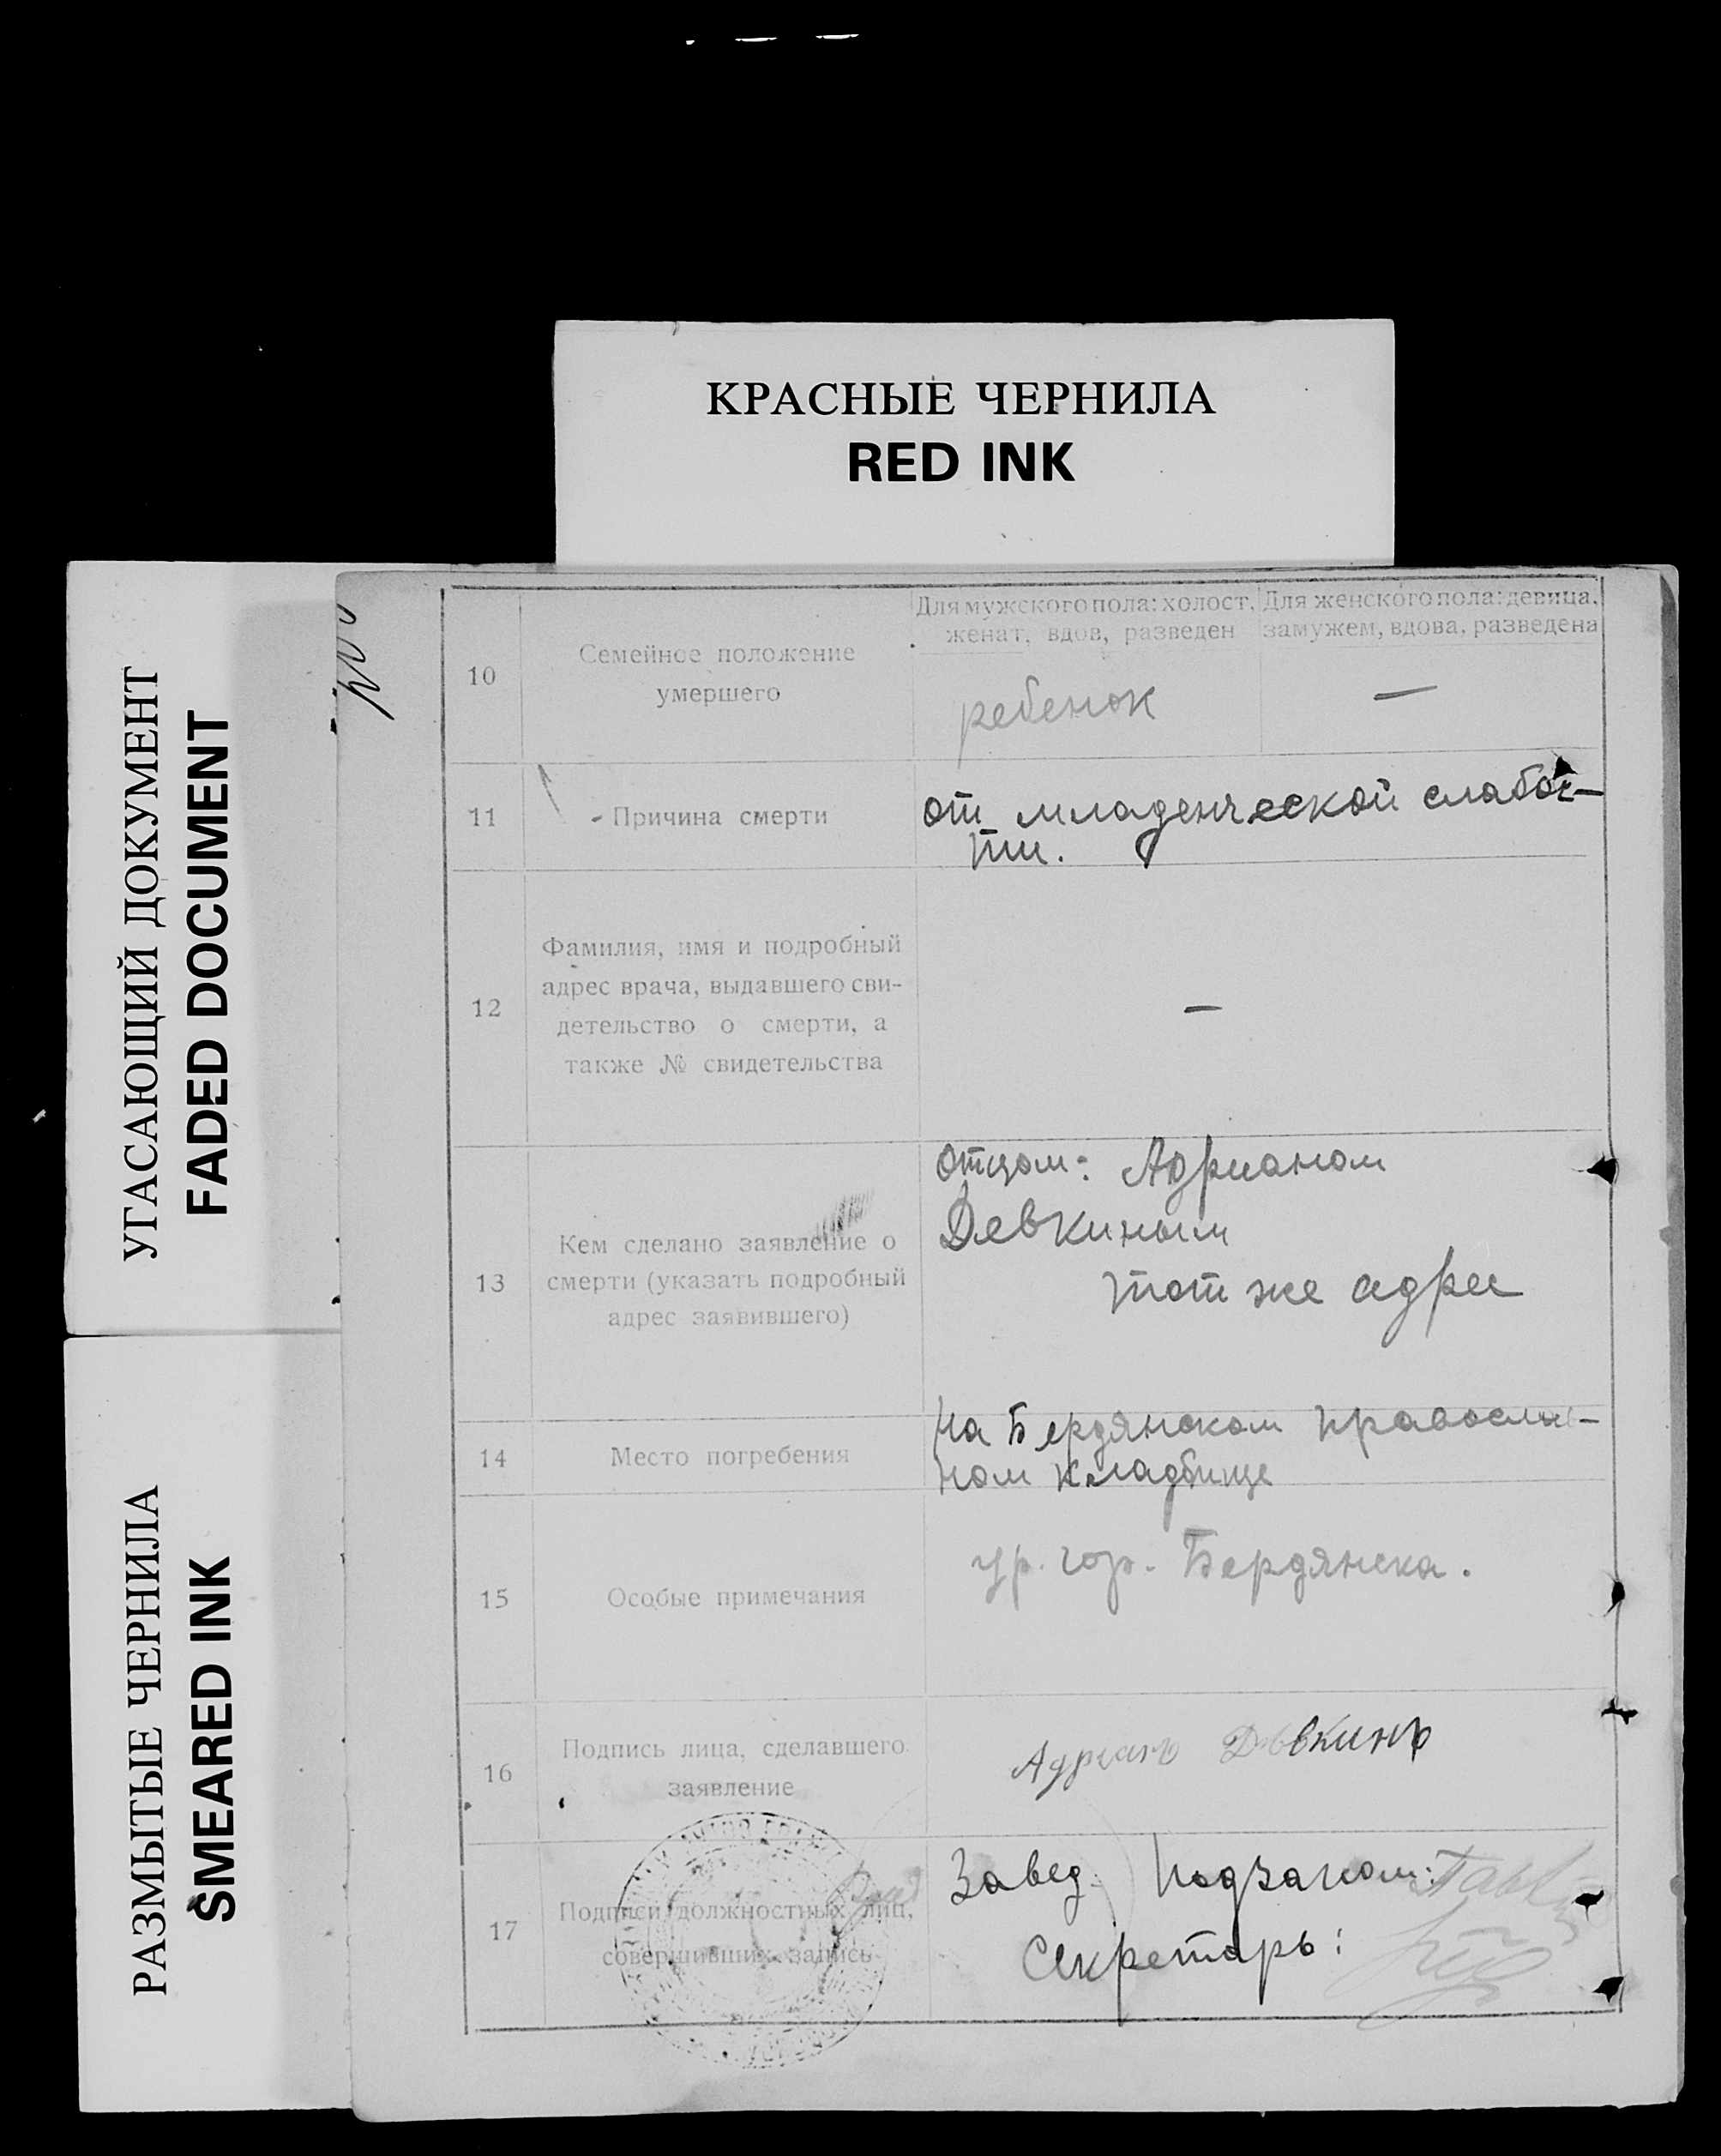 КРАСНЫЕ ЧЕРНИЛА
RED INK
УГАСАЮЩИЙ ДОКУМЕНТ
FADED DOCUMENT
РАЗМЫТЫЕ ЧЕРНИЛА
SMEARED INK
10
Семейное положение
умершего
Для мужского пола: холост,
женат, вдов, разведен
ребенок
Для женского пола: девица,
замужем, вдова, разведена
—
11
Причина смерти
от младенческой слабос-
ти.
12
Фамилия, имя и подробный
адрес врача, выдавшего сви-
детельство о смерти, а
также № свидетельства
—
13
Кем сделано заявление о
смерти (указать подробный
адрес заявившего)
отцом: Адрианом
Девкиным
тот же адрес
14
Место погребения
на Бердянском православ-
ном кладбище
15
Особые примечания
гр. гор. Бердянска.
16
Подпись лица, сделавшего
заявление
Адрианъ Девкинъ
17
Подписи должностных лиц,
совершивших запись
Завед. Подзагсом:
Секретарь: